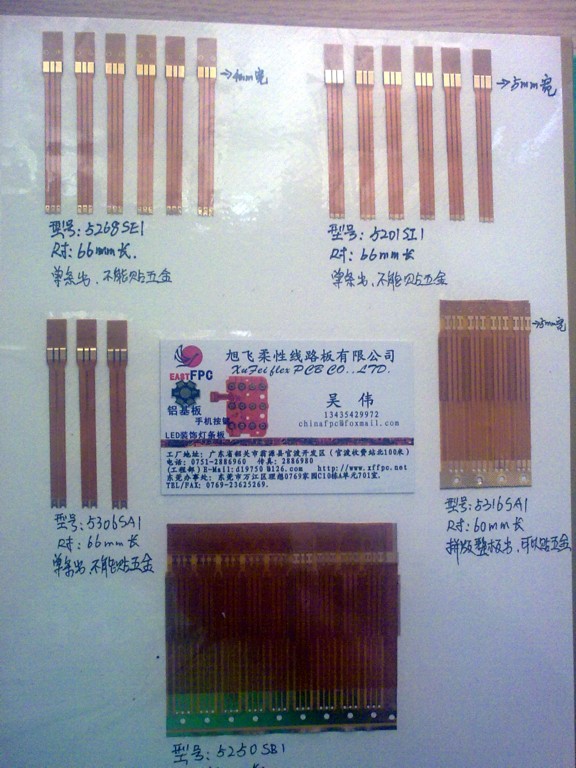 →4mm宽
→5mm宽
型号:5268SE1
尺寸:66mm长.
单条出,不能贴五金
型号:5201SI1
尺寸:66mm长
单条出,不能贴五金
→5mm宽
EASTFPC
旭飞柔性线路板有限公司
XuFeiflex PCB CO.,LTD.
吴 伟
13435429972
chinafpc@foxmail.com
铝基板
手机按键
LED装饰灯条板
工厂地址:广东省韶关市翁源县官渡开发区(官渡收费站北100米)
电话:0751-2886960 传真:2886980
(工程部)E-Mail:d19750@126.com http://www.xffpc.net
东莞办事处:东莞市万江区理想0769家园C10栋A单元701室.
TEL/FAX:0769-23625269.
型号:5306SA1
尺寸:66mm长
单条出,不能贴五金
型号:5316SA1
尺寸:60mm长
拼版整板出,可以贴五金
型号:5250SB1